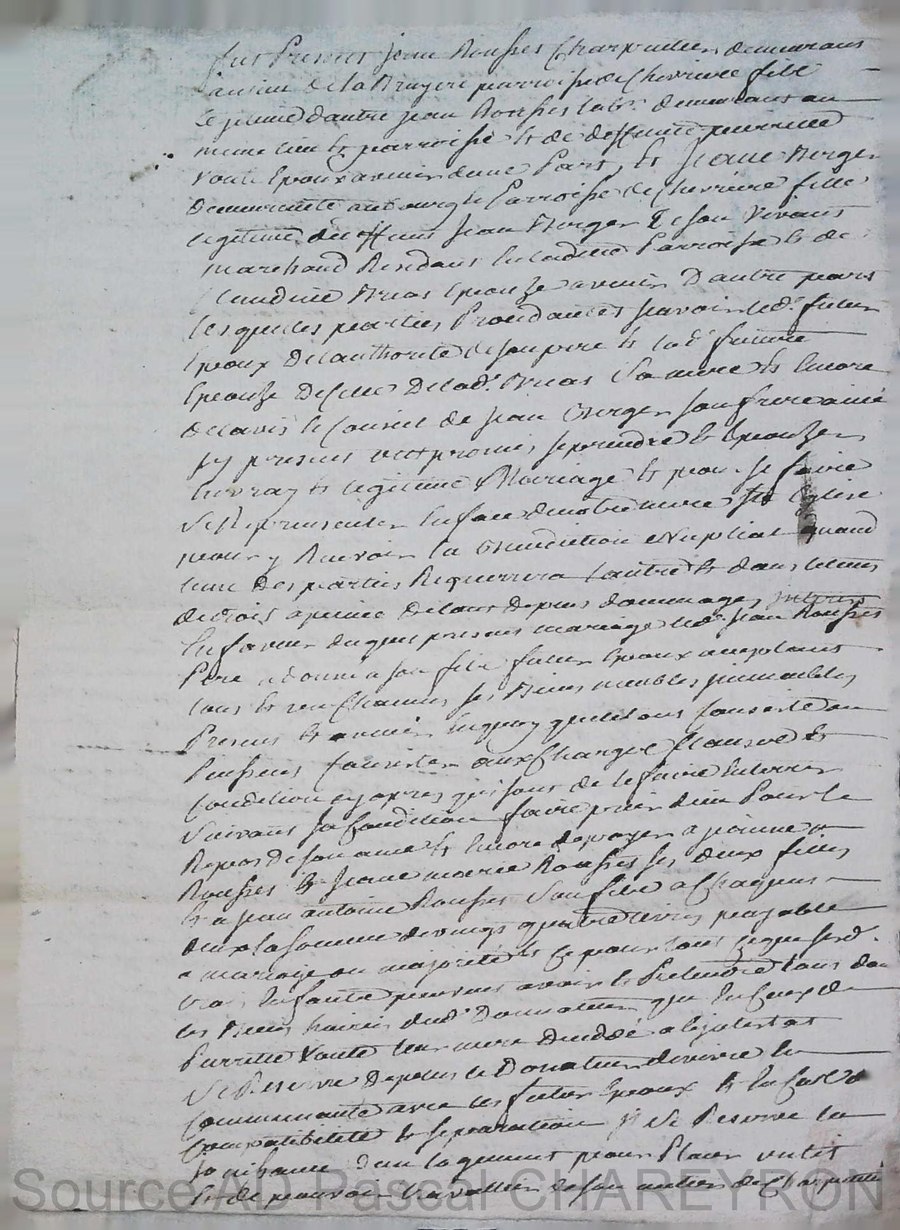 fut Present jean Rousses Charpentier demeurant
au lieu de la Bruyere parroisse de Cherriere fils
Le jeune dautre jean Rousses lab.r demeurant au
meme lieu & parroisse & de deffunte pierrette
Voute Epoux avenir dune Part, & jeanne Berger
Demeurante au bourg & Parroisse de Cherriere fille
legitime de deffunt jean Berger de son Vivant
marchand Residant en ladite Parroisse & de
Claudine Brias Epouze avenir D'autre part
Lesquelles parties Procedantes scavoir led.t futur
Epoux De l'authorité de son pere & lad.e future
Epouze De celle De lad.e Brias Sa mere & Encore
de lavis & Conseil de jean Berger son frere ainé
jcy present ont promis se prendre & Epouzer
En vray & legitime Mariage & pour se faire
se Representer En face de notre mere Ste Eglise
pour y Recevoir la Benediction Nuptiale quand
lune Des parties Requerrera lautre & dans le tems
de droit a peine de tous depens dommages jnterets
En faveur duquel present mariage led.t jean Rousses
Pere a donné a son fils futur Epoux acceptant
tous & un Chacun ses Biens meubles jmmeubles
Presents & avenir En quoy quils Consiste ou
Puissent Consister aux Charges Clauses &
Condition cy apres qui sont de le faire Enterrer
Suivant sa Condition faire prier dieu Pour le
Repos de son ame & Encore de payer a
Rousses & jeanne marie Rousses ses deux filles
& a jean antoine Rousses Son fils a Chaqun
deux la somme de vingt quatre livres payable
a mariage ou majorité & ce pour tout ce que sesd.
trois Enfants peuvent avoir & Pretendre tant dans
les Biens dud.t Donateur que En Ceux de
Pierrette Voute leur mere decedé
Se Reserve De plus le Donateur de vivre En
Communauté avec les futurs Epoux & En Cas d'
Compatibilité & separation jl Se Reserve la
jouissance d'un logement pour Placer un lit
& de pouvoir travailler de son metier de Charpentier
Source AD Pascal CHAREYRON